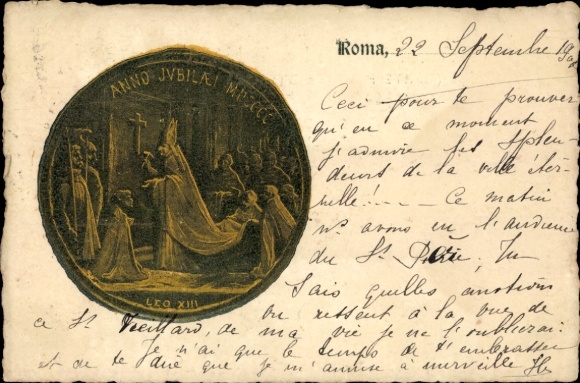 ANNO JVBILÆI MDCCCC
LEO XIII
Roma, 22 Septembre 19
Ceci pour te prouver
qu'en ce moment
j'admire les splen
deurs de la ville éter
nelle!... — Ce matin
ns avons eu l'audience
du St Père. Tu
sais quelles émotions
on ressent à la vue de
ce St Vieillard, de ma vie je ne l'oublierai
Je n'ai que le temps de t'embrasser
et de te dire que je m'amuse à merveille